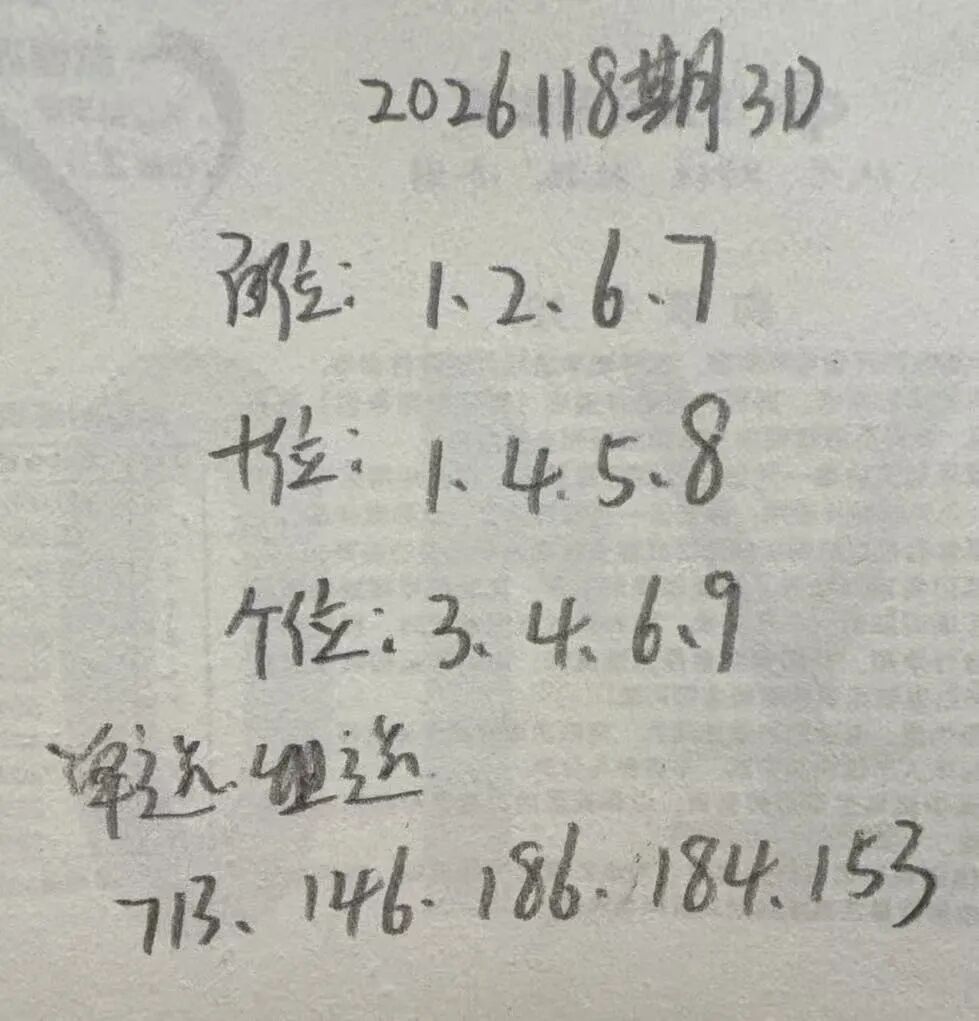 2026118期3D
百位：1、2、6、7
十位：1、4、5、8
个位：3、4、6、9
单选、组选
713、146、186、184、153